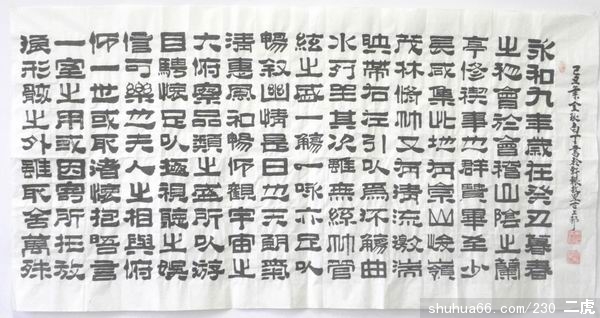 永和九年歲在癸丑暮春
之初會於會稽山陰之蘭
亭修禊事也群賢畢至少
長咸集此地有崇山峻嶺
茂林脩竹又有清流激湍
映帶左右引以為流觴曲
水列坐其次雖無絲竹管
絃之盛一觴一詠亦足以
暢敘幽情是日也天朗氣
清惠風和暢仰觀宇宙之
大俯察品類之盛所以游
目騁懷足以極視聽之娛
信可樂也夫人之相與俯
仰一世或取諸懷抱悟言
一室之內或因寄所托放
浪形骸之外雖取舍萬殊
shuhua66.com/230 二虎